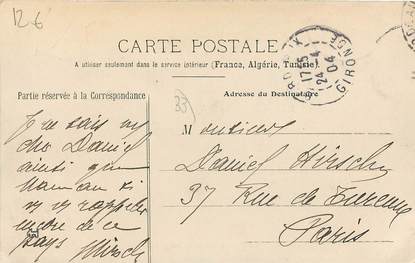 12 6
CARTE POSTALE
A utiliser seulement dans le service intérieur (France, Algérie, Tunisie).
Partie réservée à la Correspondance
Adresse du Destinataire
BORDEAUX GIRONDE
17 25
24 4
04
33
Je sais
cher Daniel
ainsi que
Maman si
rappeler
encore de ce
pays Hirsch
Monsieur
Daniel Hirsch
37 Rue de Turenne
Paris